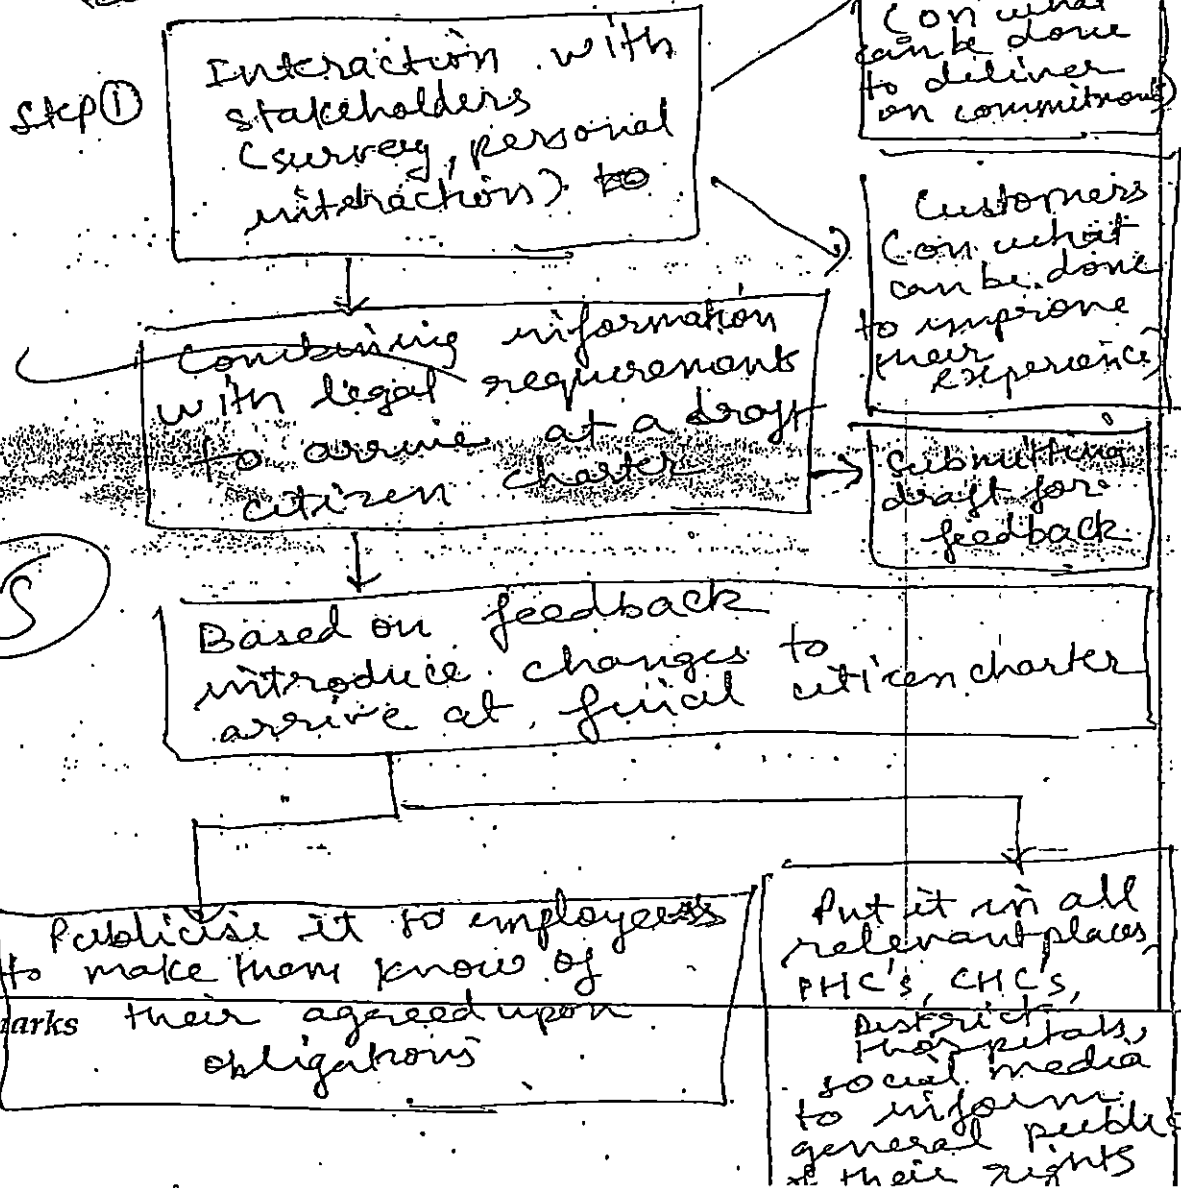 Step ①
Interaction with
stakeholders
(survey, personal
interaction) to
(on what
can be done
to deliver
on commitments)
Customers
(on what
can be done
to improve
their
experience)
Combining information
with legal requirements
to arrive at a draft
citizen charter
Submitting
draft for
feedback
Based on feedback
introduce changes to
arrive at final citizen charter
Publicise it to employees
to make them know of
their agreed upon
obligations
marks
Put it in all
relevant places,
PHC's, CHC's,
District
Hospitals,
social media
to inform
general public
of their rights